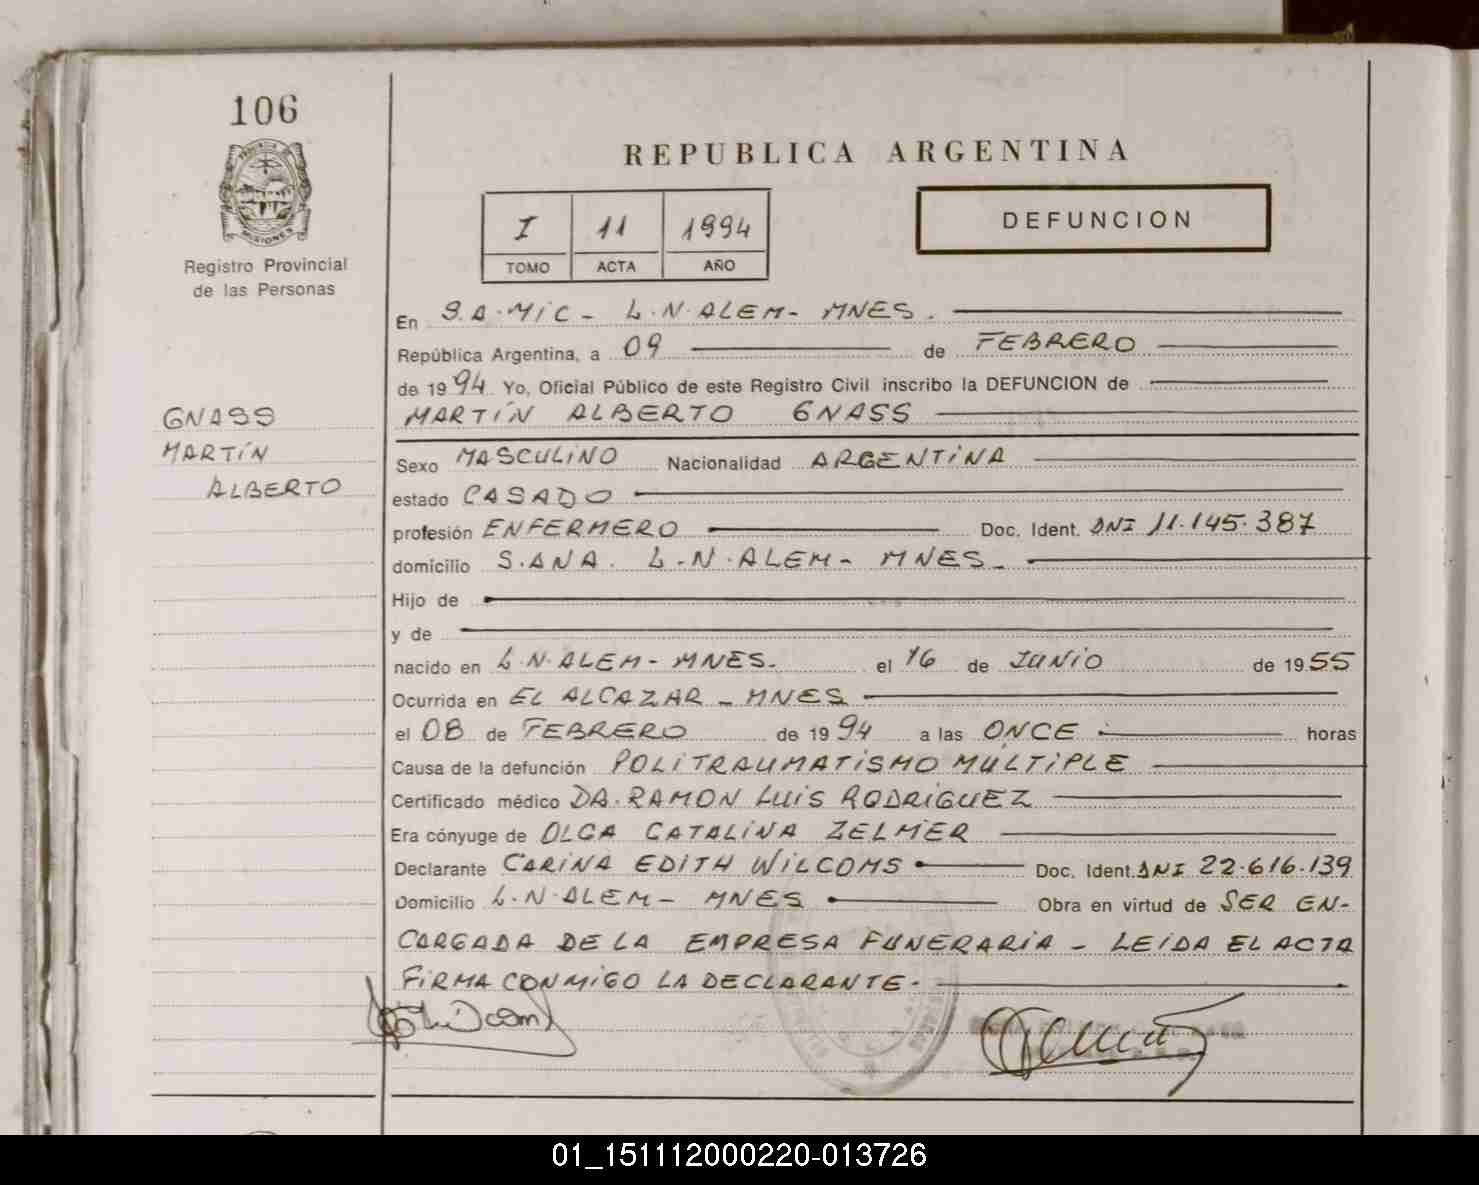 106
PROVINCIA DE MISIONES
Registro Provincial
de las Personas
GNASS
MARTÍN
ALBERTO
REPUBLICA ARGENTINA
I 11 1994
TOMO ACTA AÑO
DEFUNCION
En S.A.MIC - L.N.ALEM - MNES.
República Argentina, a 09 de FEBRERO
de 1994. Yo, Oficial Público de este Registro Civil inscribo la DEFUNCION de
MARTÍN ALBERTO GNASS
Sexo MASCULINO Nacionalidad ARGENTINA
estado CASADO
profesión ENFERMERO Doc. Ident. DNI 11.145.387
domicilio S.ANA. L.N.ALEM - MNES.
Hijo de
y de
nacido en L.N.ALEM - MNES. el 16 de JUNIO de 1955
Ocurrida en EL ALCAZAR - MNES
el 08 de FEBRERO de 1994 a las ONCE horas
Causa de la defunción POLITRAUMATISMO MÚLTIPLE
Certificado médico DR. RAMON LUIS RODRIGUEZ
Era cónyuge de OLGA CATALINA ZELMER
Declarante CARINA EDITH WILCOMS Doc. Ident. DNI 22.616.139
Domicilio L.N.ALEM - MNES Obra en virtud de SER EN-
CARGADA DE LA EMPRESA FUNERARIA - LEÍDA EL ACTA
FIRMA CONMIGO LA DECLARANTE.
01_151112000220-013726